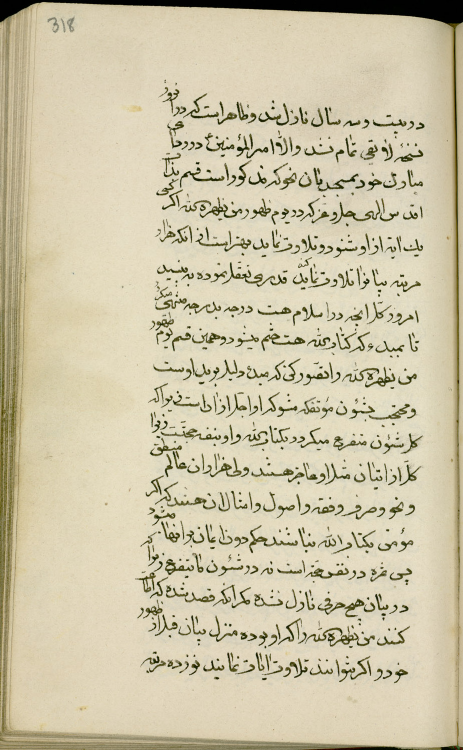 318
در بیست و سه سال نازل شد و ظاهر است که در آن روز
نسخهٔ لایقی تمام نشد والا امیرالمؤمنین ع در رجا
مبارک خود بمسجد بآن نحو که مذکور است قسم بذات
اقدس الهی جل و عز که در یوم ظهور من یظهره الله اگر کسی
یک آیه از او شنود و تلاوت نماید بهتر است از آنکه هزار
مرتبه بیان را تلاوت نماید قدری تعقل نموده به بینید
امروز کل آنچه در اسلام هست درجه بدرجه منتهی میگردد
تا بمبدء که کتاب الله هست ختم میشود و همین قسم یوم ظهور
من یظهره الله را تصور کن که مبدء دلیل بر ید اوست
و محتجب بشئون مؤتفکه مشو که او اجل از آنست زیرا که
کل شئون متفرع میگردد بکتاب الله و او بنفسه حجت است زیرا
کل از اتیان مثل او عاجز هستند ولی هزاران عالم منطق
و نحو و صرف و فقه و اصول و امثال آن هستند که اگر
مؤمن بکتاب الله نباشند حکم دون ایمان بر آنها میشود
پس ثمره در نفس حجت است نه در شئون ما یتفرع و بدانکه
در بیان هیچ حرفی نازل نشده مگر آنکه قصد شده که اطاعت
کنند من یظهره الله را که او بوده منزل بیان قبل از ظهور
خود و اگر بتوانند تلاوت آیات نمایند نوزده مرتبه